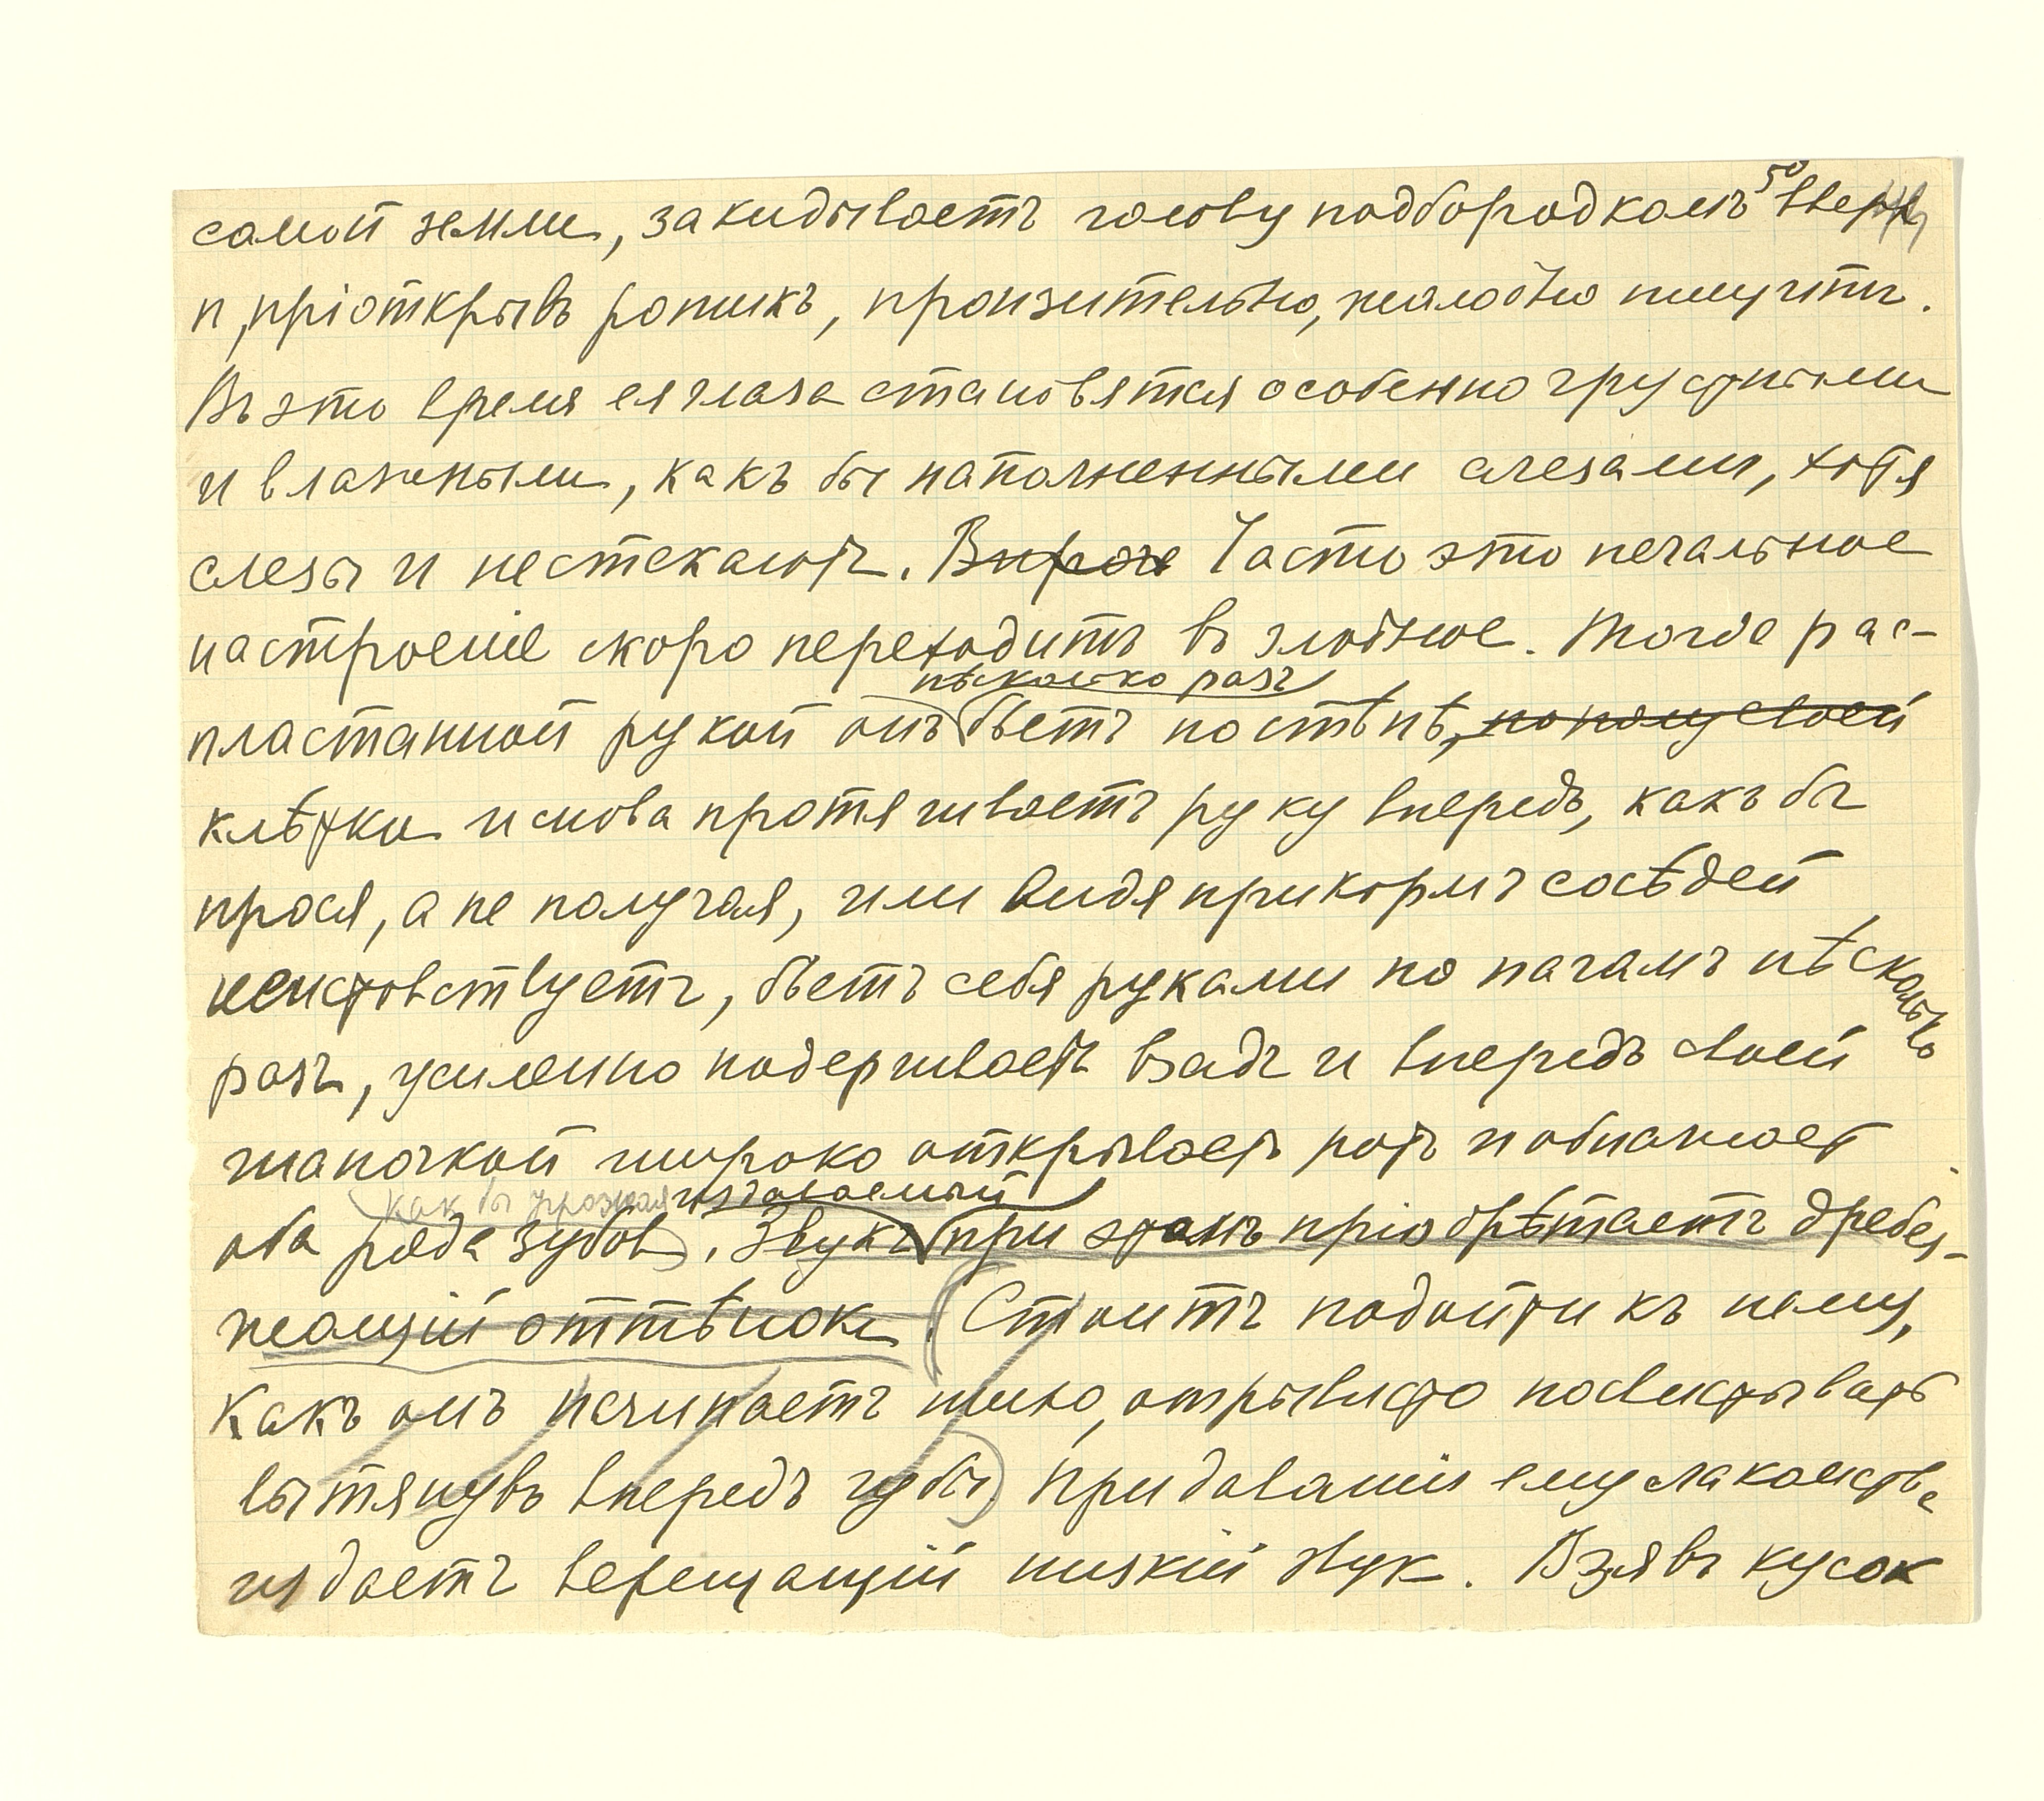 50
самой земли, закидываетъ голову подбородкомъ вверх
и, пріоткрывъ ротикъ, пронзительно, жалобно пищитъ.
Въ это время ея глаза становятся особенно грустными
и влажными, какъ бы наполненными слезами, хотя
слезы и не стекаютъ. Впроче Часто это печальное
настроеніе скоро переходитъ въ злобное. Тогда рас-
нѣсколько разъ
пластанной рукой онъ бьетъ по стѣнѣ, по полу своей
клѣтки и снова протягиваетъ руку впередъ, какъ бы
прося, а не получая, или видя прикормъ сосѣдей
неистовствуетъ, бьетъ себя руками по ногамъ нѣсколько
разъ, усиленно подергиваетъ взадъ и впередъ своей
шапочкой широко открываетъ ротъ и обнажает
как бы угрожая издаваемый
оба ряда зубовъ. Звукъ при этомъ пріобрѣтаетъ дребез-
жащій оттѣнокъ. Стоитъ подойти къ нему,
какъ онъ начинаетъ тихо, отрывисто посвистывать
вытянувъ впередъ губы. При даваніи ему лакомства
издаетъ верещащій низкій звук. Взявъ кусок